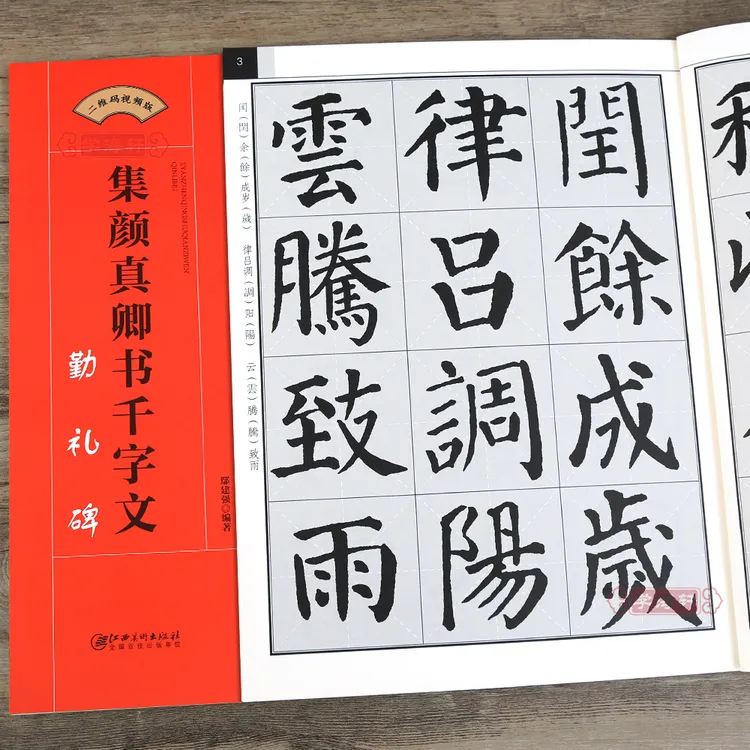 二维码视频版
集颜真卿书千字文
YANZHENQINGSHUQIANZIWEN
QINLIBEI
勤礼碑
鄢建强◎编著
江西美术出版社
全国百佳出版单位
3
闰余成岁
律吕调阳
云腾致雨
閏餘成歲
律呂調陽
雲騰致雨
闰(閏)余(餘)成岁(歲) 律吕调(調)阳(陽) 云(雲)腾(騰)致雨